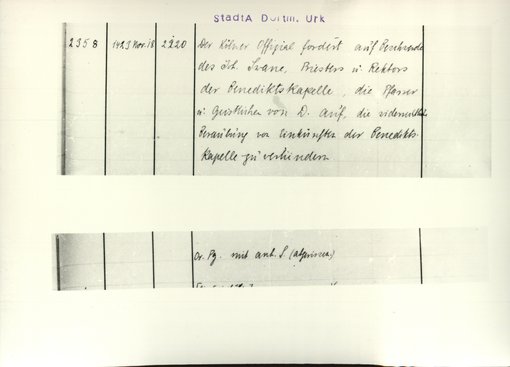 StadtA Dortm. Urk
2358 1423 Nov. 18 2220 Der Kölner Offizial fordert auf Beschwerde
des Joh. Swane, Priesters u. Rektors
der Benediktskapelle, die Pfarrer
u. Geistlichen von D. auf, die widerrechtl.
Beraubung von Einkünften der Benedikts-
kapelle zu verhindern
Or. Pg. mit anh. S. (abgerissen)